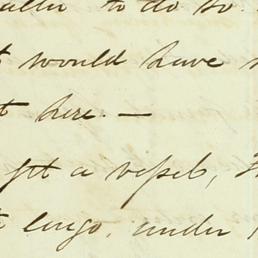 to do so.
would have
here. —
a vessel,
cargo, under